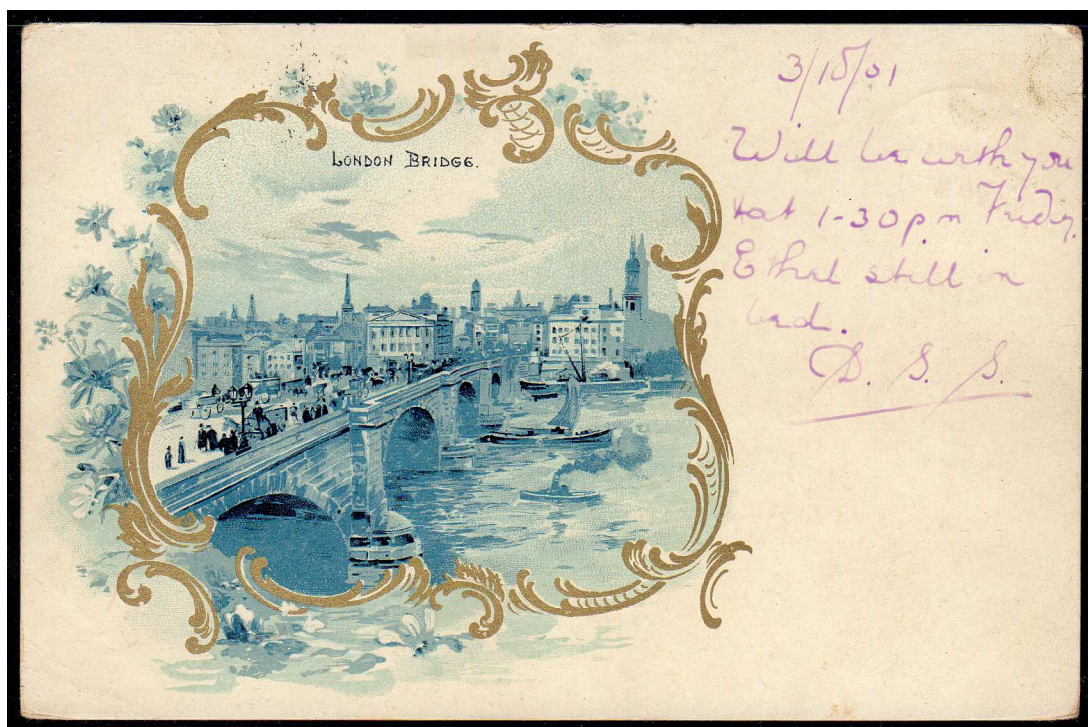 LONDON BRIDGE.
3/10/01
Will be with you
at 1-30 p.m Friday.
Ethel still in
bed.